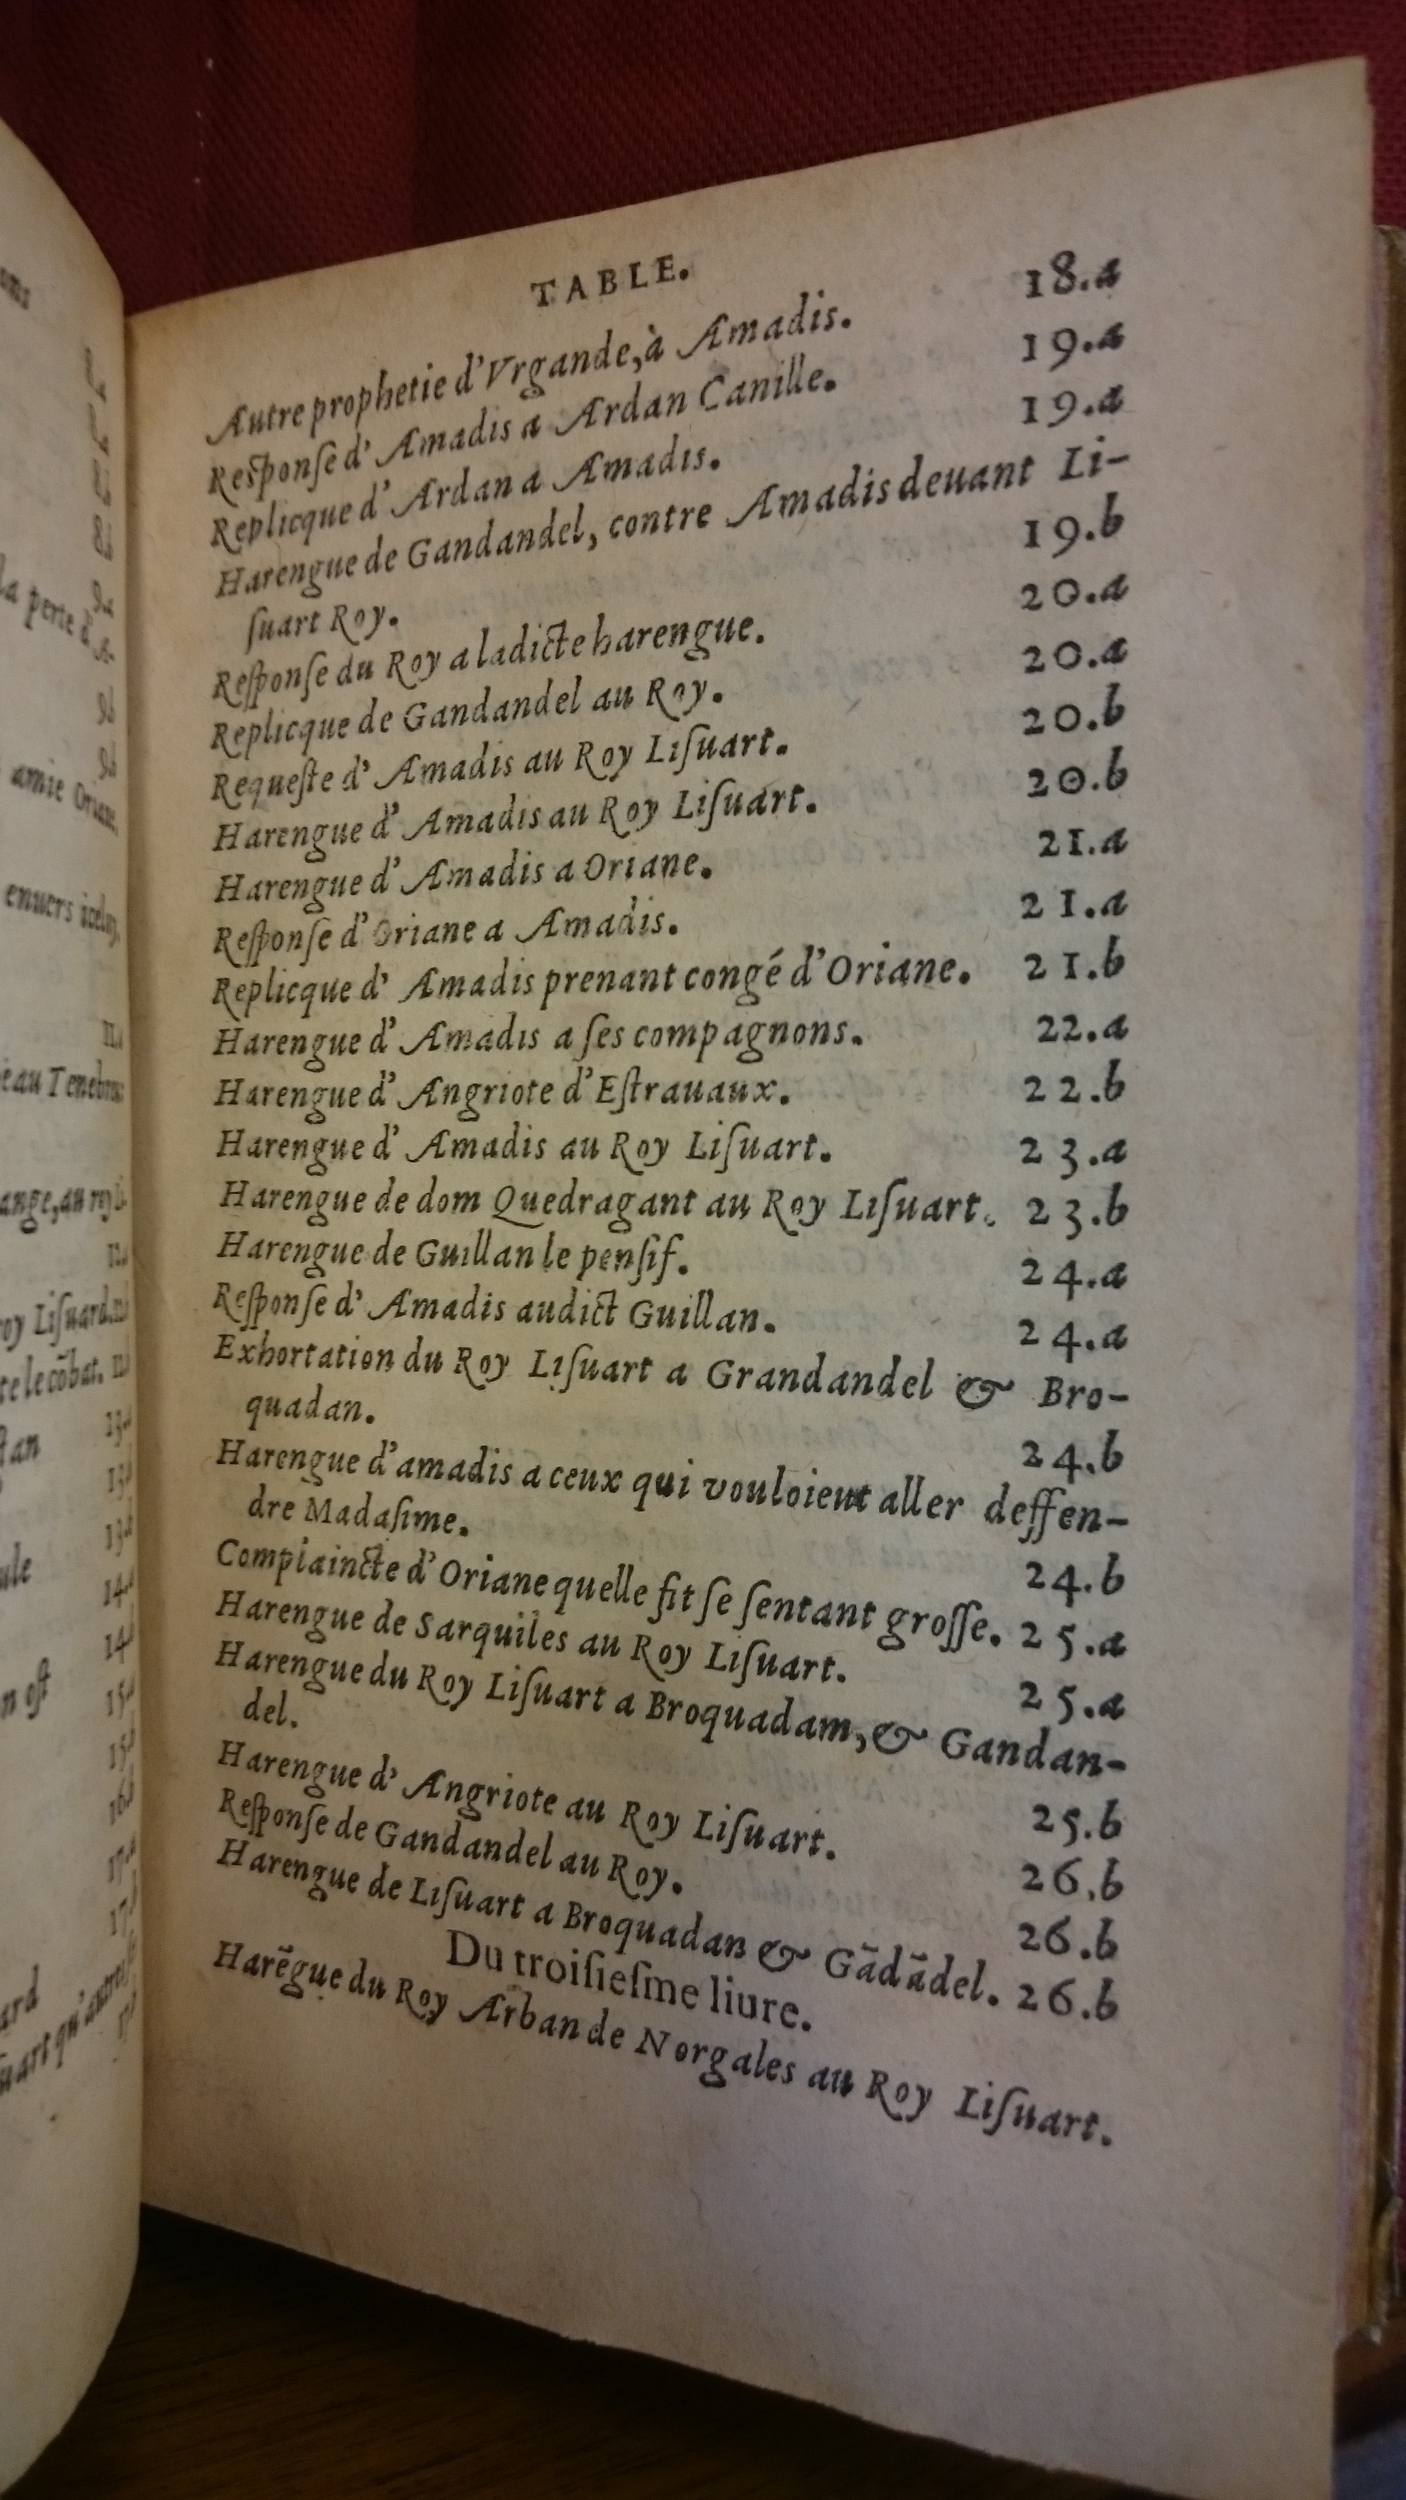 la perte d'A-
amie Oriane,
enuers iceluy,
eau Tenebreux
ange, au roy Li-
roy Lisuard.
te le cõbat.
n est
suart qu'autres
TABLE.
Autre prophetie d'Vrgande, à Amadis. 18.a
Response d'Amadis a Ardan Canille. 19.a
Replicque d'Ardan a Amadis. 19.a
Harengue de Gandandel, contre Amadis deuant Li-
ſuart Roy. 19.b
Reſponſe du Roy a ladicte harengue. 20.a
Replicque de Gandandel au Roy. 20.a
Requeſte d'Amadis au Roy Liſuart. 20.b
Harengue d'Amadis au Roy Liſuart. 20.b
Harengue d'Amadis a Oriane. 21.a
Reſponſe d'Oriane a Amadis. 21.a
Replicque d'Amadis prenant congé d'Oriane. 21.b
Harengue d'Amadis a ſes compagnons. 22.a
Harengue d'Angriote d'Eſtrauaux. 22.b
Harengue d'Amadis au Roy Liſuart. 23.a
Harengue de dom Quedragant au Roy Liſuart. 23.b
Harengue de Guillan le penſif. 24.a
Reſponſe d'Amadis audict Guillan. 24.a
Exhortation du Roy Liſuart a Grandandel & Bro-
quadan. 24.b
Harengue d'amadis a ceux qui vouloient aller deffen-
dre Madaſime. 24.b
Complaincte d'Oriane quelle fit ſe ſentant groſſe. 25.a
Harengue de Sarquiles au Roy Liſuart. 25.a
Harengue du Roy Liſuart a Broquadam, & Gandan-
del. 25.b
Harengue d'Angriote au Roy Liſuart. 26.b
Reſponſe de Gandandel au Roy. 26.b
Harengue de Liſuart a Broquadan & Gãdãdel. 26.b
Du troiſieſme liure.
Harẽgue du Roy Arban de Norgales au Roy Liſuart.